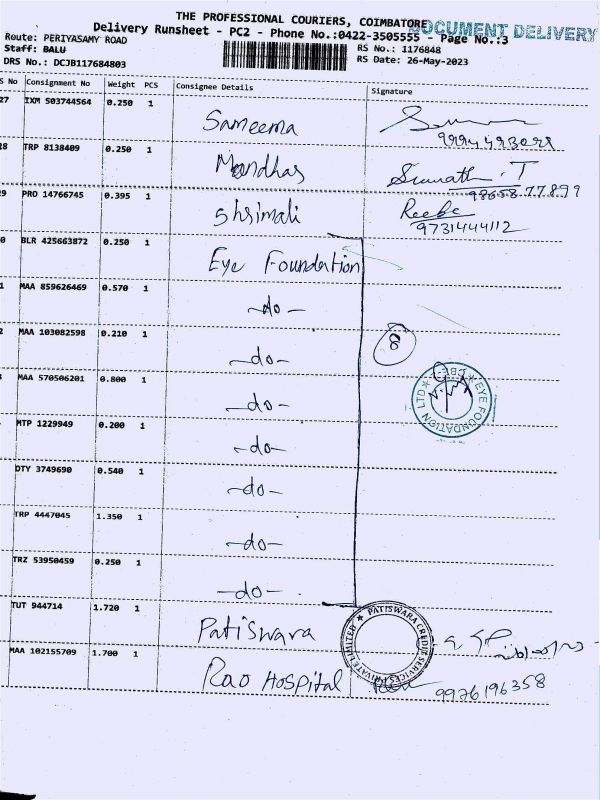 THE PROFESSIONAL COURIERS, COIMBATORE
DOCUMENT DELIVERY
Delivery Runsheet - PC2 - Phone No.:0422-3505555 - Page No.:3
Route: PERIYASAMY ROAD
Staff: BALU
RS No.: 1176848
DRS No.: DCJB117684803
RS Date: 26-May-2023
S No Consignment No Weight PCS Consignee Details Signature
27 IXM 503744564 0.250 1 Sameema
28 TRP 8138409 0.250 1
9 PRO 14766745 0.395 1 Shrimali Reeba
9731444112
0 BLR 425663872 0.250 1 Eye Foundation
1 MAA 859626469 0.570 1 -do-
2 MAA 103082598 0.210 1 -do-
8
MAA 570506201 0.800 1 -do-
EYE FOUNDATION LTD CBE
MTP 1229949 0.200 1 -do-
DTY 3749690 0.540 1 -do-
TRP 4447045 1.350 1 -do-
TRZ 53950459 0.250 1 -do-
TUT 944714 1.720 1 Patiswara
PATISWARA CREDIT SERVICES PRIVATE LIMITED
MAA 102155709 1.700 1 Rao Hospital
9976196358